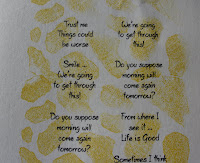 Trust me
Things could
be worse
We're going
to get through
this!
Smile ...
We're going
to get through
this!
Do you suppose
morning will
come again
tomorrow?
Do you suppose
morning will
come again
tomorrow?
From where I
see it ...
Life is Good
Sometimes I think